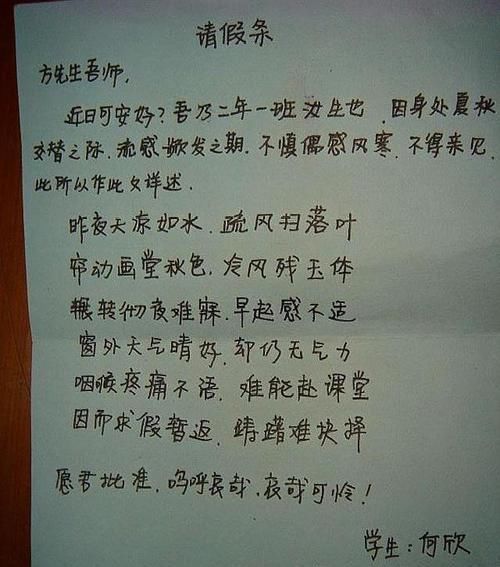 请假条
方先生吾师,
近日可安好?吾乃二年一班汝生也,因身处夏秋
交替之际,流感撒发之期,不慎偶感风寒,不得亲见,
此所以作此文详述.
昨夜天凉如水,疏风扫落叶
帘动画堂秋色,冷风残玉体
辗转彻夜难寐,早起感不适
窗外天气晴好,却仍无气力
咽喉疼痛不语,难能赴课堂
因而求假暂返,踌躇难抉择
愿君批准,呜呼哀哉,哀哉可怜!
学生:何欣